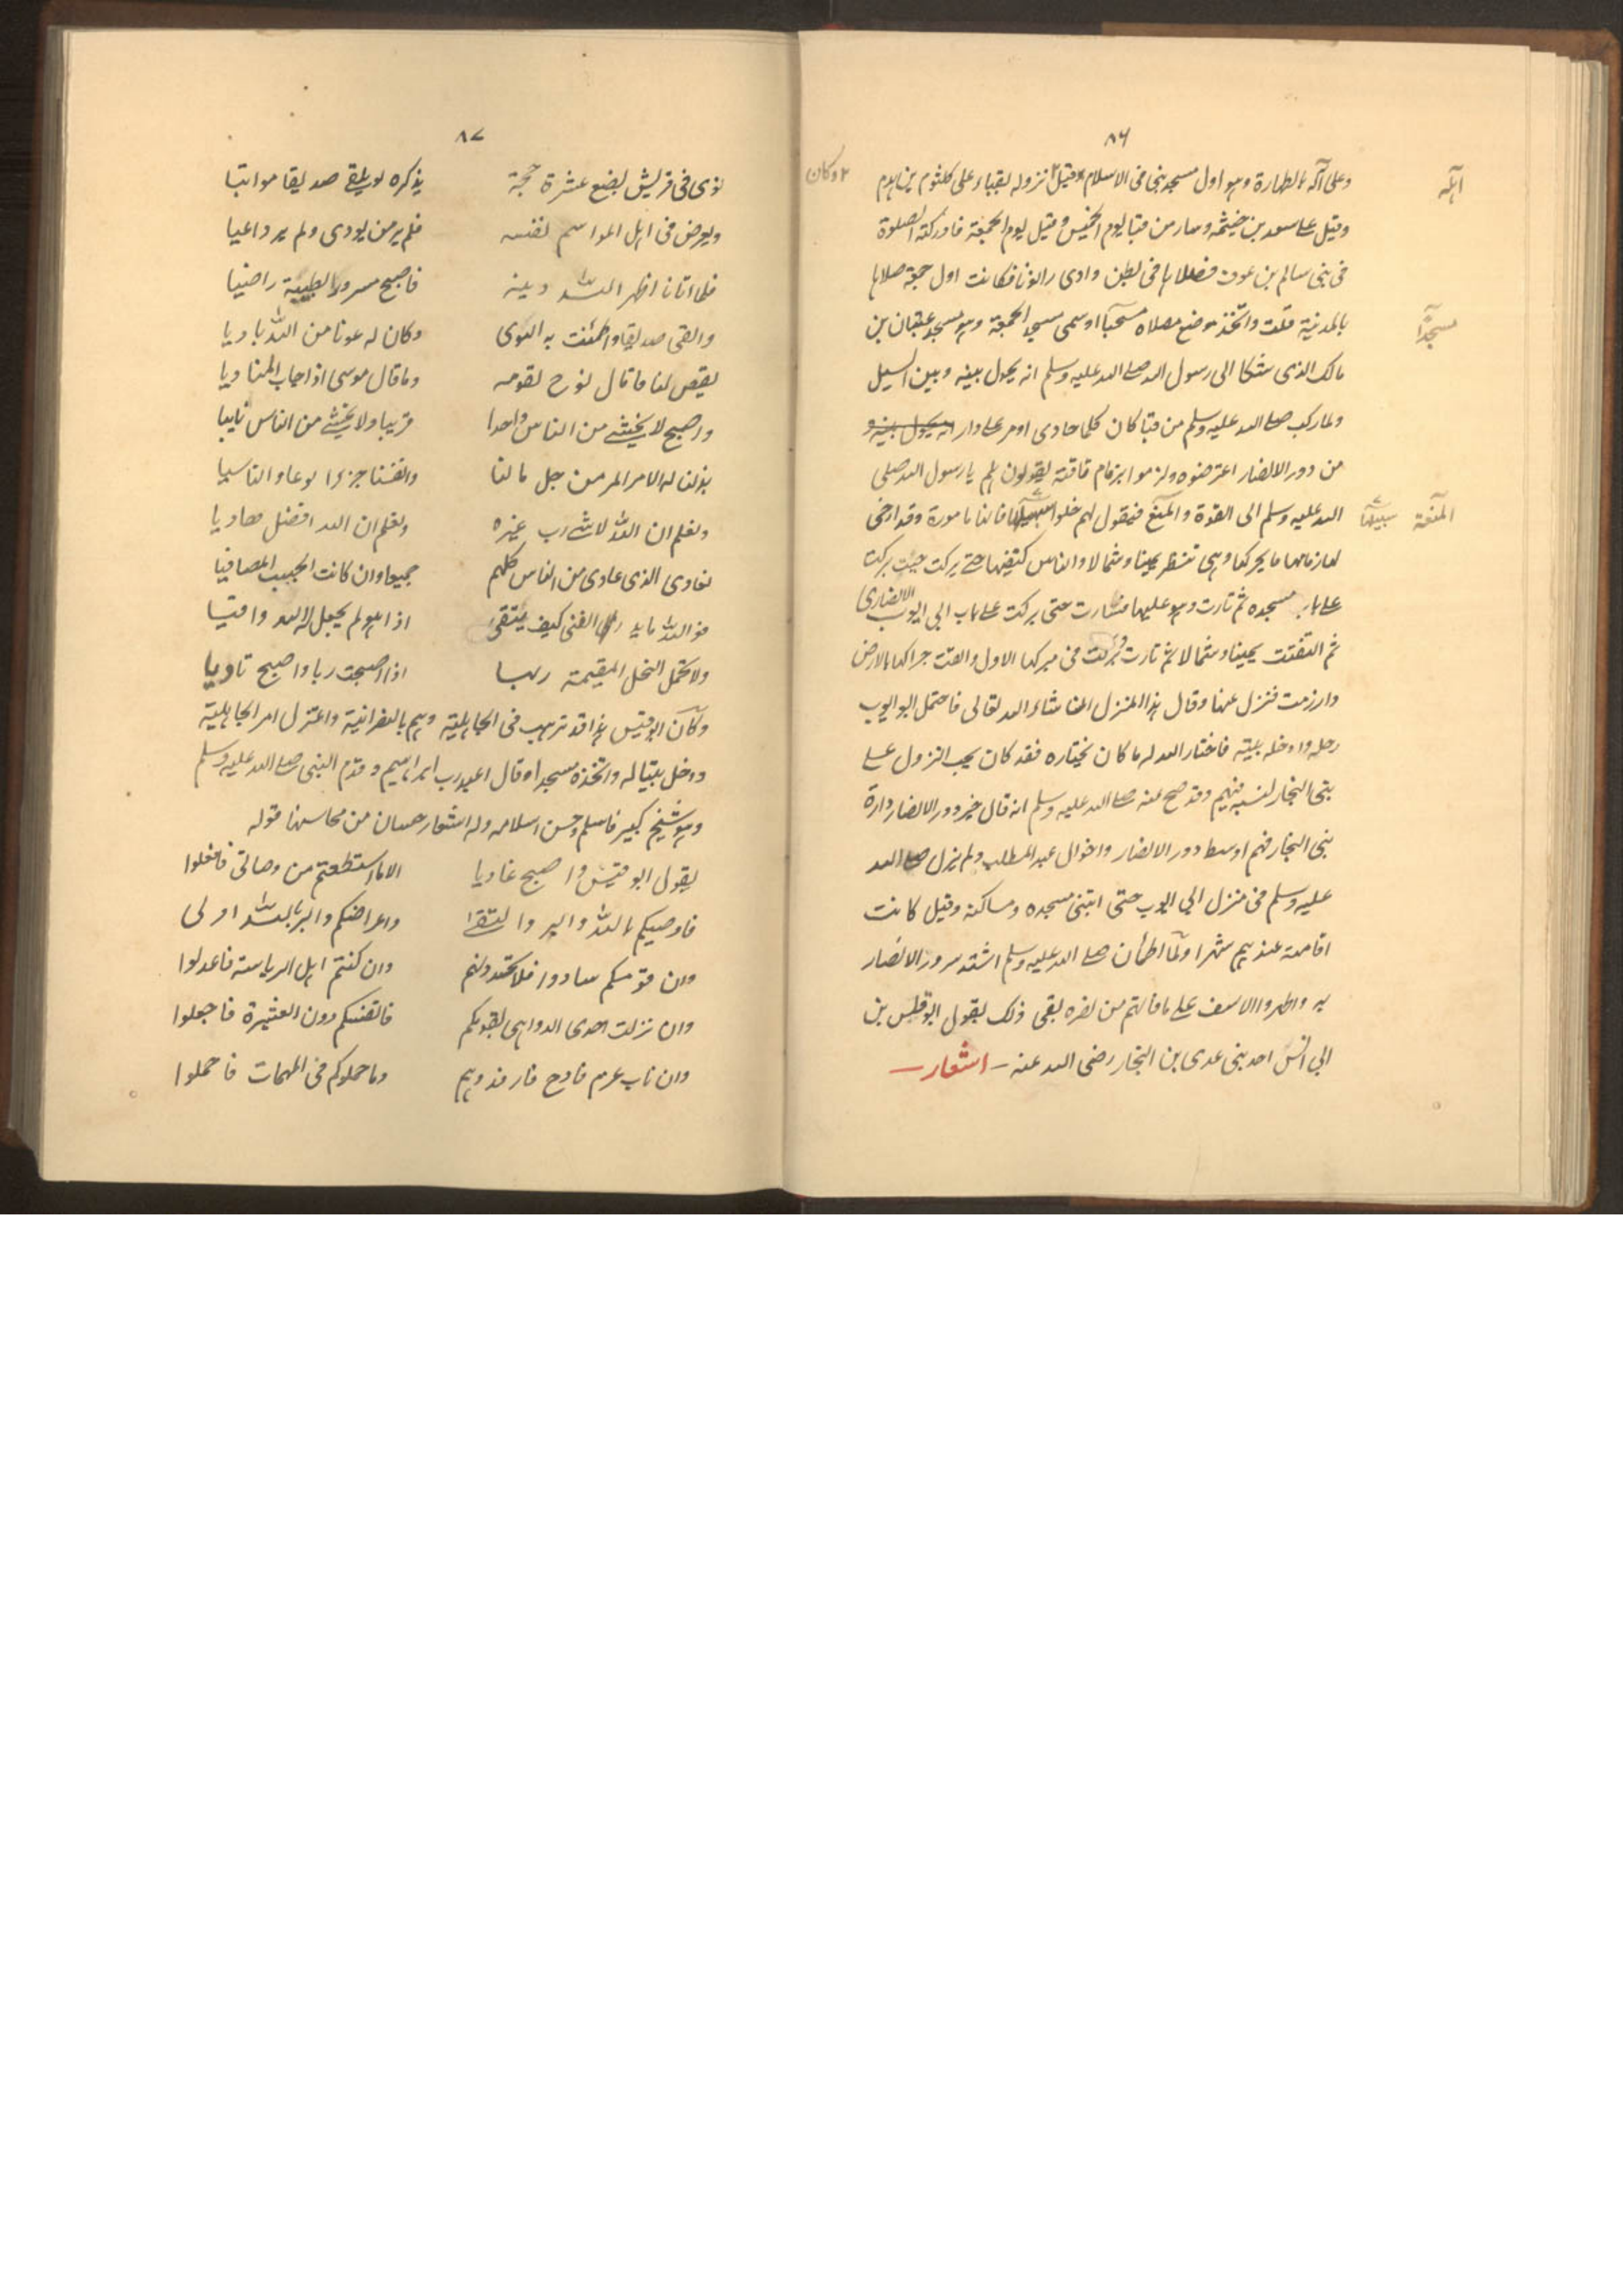 ٨٦
وعلى آله بالطهارة وهو اول مسجد بنى فى الاسلام وقيل نزوله بقباء على كلثوم بن هدم
اهله
٢ وكان
وقيل على سعد بن خيثمه وسار من قبا يوم الخميس وقيل يوم الجمعة فادركته الصلوة
فى بنى سالم بن عوف فصلاها فى بطن وادى رانونا فكانت اول جمعة صلاها
بالمدينة قلت واتخذ موضع مصلاه مسجدا وسمى مسجد الجمعة وهو مسجد عتبان بن
مسجدًا
مالك الذى شكا الى رسول الله صلے الله عليه وسلم انه يحول بينه وبين السيل
ولما ركب صلے الله عليه وسلم من قبا كان كلما حاذى اومر على دار انه يحول بينه و
من دور الانصار اعترضوه ولزموا بزمام ناقته يقولون هلم يا رسول الله صلى
الله عليه وسلم الى القوة والمنعة فيقول لهم خلوا سبيلها فانها مامورة وقد ارخى
المنعة
سبيلها
لها زمامها ما يحركها وهى تنظر يمينا وشمالا والناس كنفيها حتے بركت حيث بركت
على باب مسجده ثم ثارت وهو عليها فسارت حتى بركت على باب ابى ايوب الانصارى
ثم التفتت يمينا وشمالا ثم ثارت وبركت فى مبركها الاول والقت جرانها بالارض
وارزمت فنزل عنها وقال هذا المنزل انشاء الله تعالى فاحتمل ابو ايوب
رحله وادخله بيته فاختار الله له ما كان يختاره فقد كان يحب النزول على
بنى النجار لنسبه فيهم وقد صح عنه صلے الله عليه وسلم انه قال خير دور الانصار دارة
بنى النجار فهم اوسط دور الانصار واخوال عبد المطلب ولم يزل صلے الله
عليه وسلم فى منزل ابى ايوب حتى ابتنى مسجده ومساكنه وقيل كانت
اقامته عندهم شهرا ولما اطمأن صلے الله عليه وسلم اشتد سرور الانصار
به واظهروا الاسف على ما فاتهم من نصره بقى ذلك يقول ابو قيس بن
ابى انس احد بنى عدى بن النجار رضى الله عنه ـ اشعار ـ
٨٧
ثوى فى قريش بضع عشرة حجة يذكره لو يلقے صديقا مواتيا
ويعرض فى اهل المواسم نفسه فلم ير من يووى ولم ير داعيا
فلما اتانا اظهر الله دينه فاصبح مسرورا بطيبة راضيا
والقى صديقا واطمئنت به النوى وكان له عونا من الله باديا
يقص لنا ما قال نوح لقومه وما قال موسى اذ اجاب المناديا
واصبح لا يخشے من الناس واحدا قريبا ولا يخشے من الناس نايبا
بذلنا له الامر المر من جل مالنا وانفسنا
ونعلم ان الله لا شے رب غيره ونعلم ان الله افضل هاديا
نعادى الذى عادى من الناس كلهم جميعا وان كانت الحبيب المصافيا
فوالله ما يدرى الفتى كيف يتقى اذا هو لم يجعل له الله واقيا
ولا تحمل النخل المقيمة ربها اذا اصبحت ريا واصبح ثاويا
وكان ابو قيس هذا قد ترهب فى الجاهلية وهم بالنصرانية واعتزل امر الجاهلية
ودخل بيتا له واتخذه مسجدا وقال اعبد رب ابراهيم وقدم النبى صلے الله عليه وسلم
وهو شيخ كبير فاسلم وحسن اسلامه وله اشعار حسان من محاسنها قوله
يقول ابو قيس واصبح غاديا الا ما استطعتم من وصاتى فافعلوا
فاوصيكم بالله والبر والتقے واعراضكم والبر بالله اولى
وان قومكم سادوا فلا تحسدونهم وان كنتم اهل الرياسة فاعدلوا
وان نزلت احدى الدواهى بقومكم فانفسكم دون العشيرة فاجعلوا
وان ناب غرم فادح فارفدوهم وما حملوكم فى المهمات فاحملوا